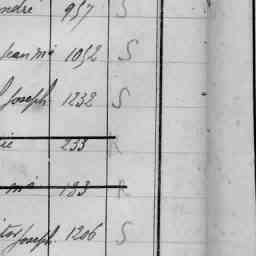 ndré 957 S
Jean Mie 1052 S
Joseph 1232 S
rie 233 R
Mie 183 R
itor Joseph 1206 S